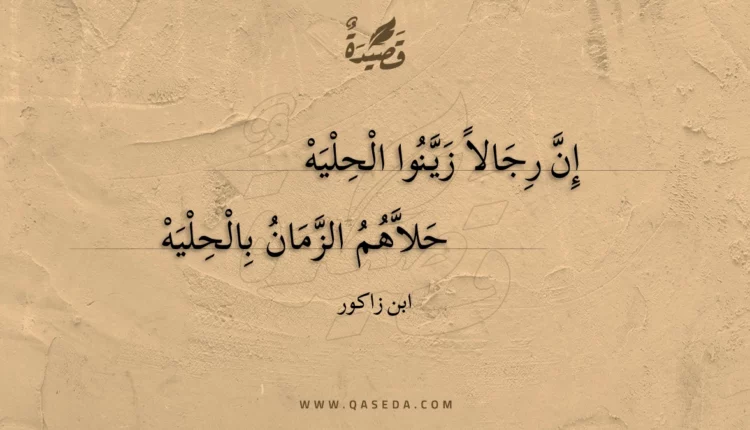 قَصِيْدَةٌ
إِنَّ رِجَالاً زَيَّنُوا الْحِلْيَهْ
حَلاَّهُمُ الزَّمَانُ بِالْحِلْيَهْ
ابن زاكور
WWW.QASEDA.COM